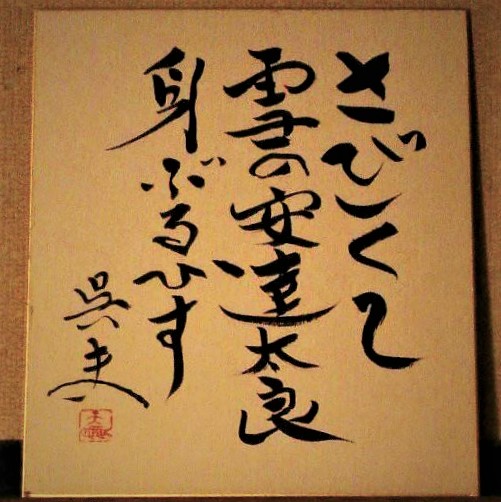 さびしくて
雪の安達太良
身ぶるひす
呉夫